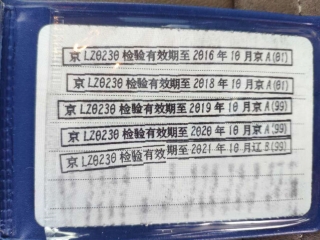 京 LZ0230 检验有效期至 2016 年 10 月京 A(01)
京 LZ0230 检验有效期至 2018 年 10 月京 A(01)
京 LZ0230 检验有效期至 2019 年 10 月京 A(99)
京 LZ0230 检验有效期至 2020 年 10 月京 A(99)
京 LZ0230 检验有效期至 2021 年 10 月辽 B(99)